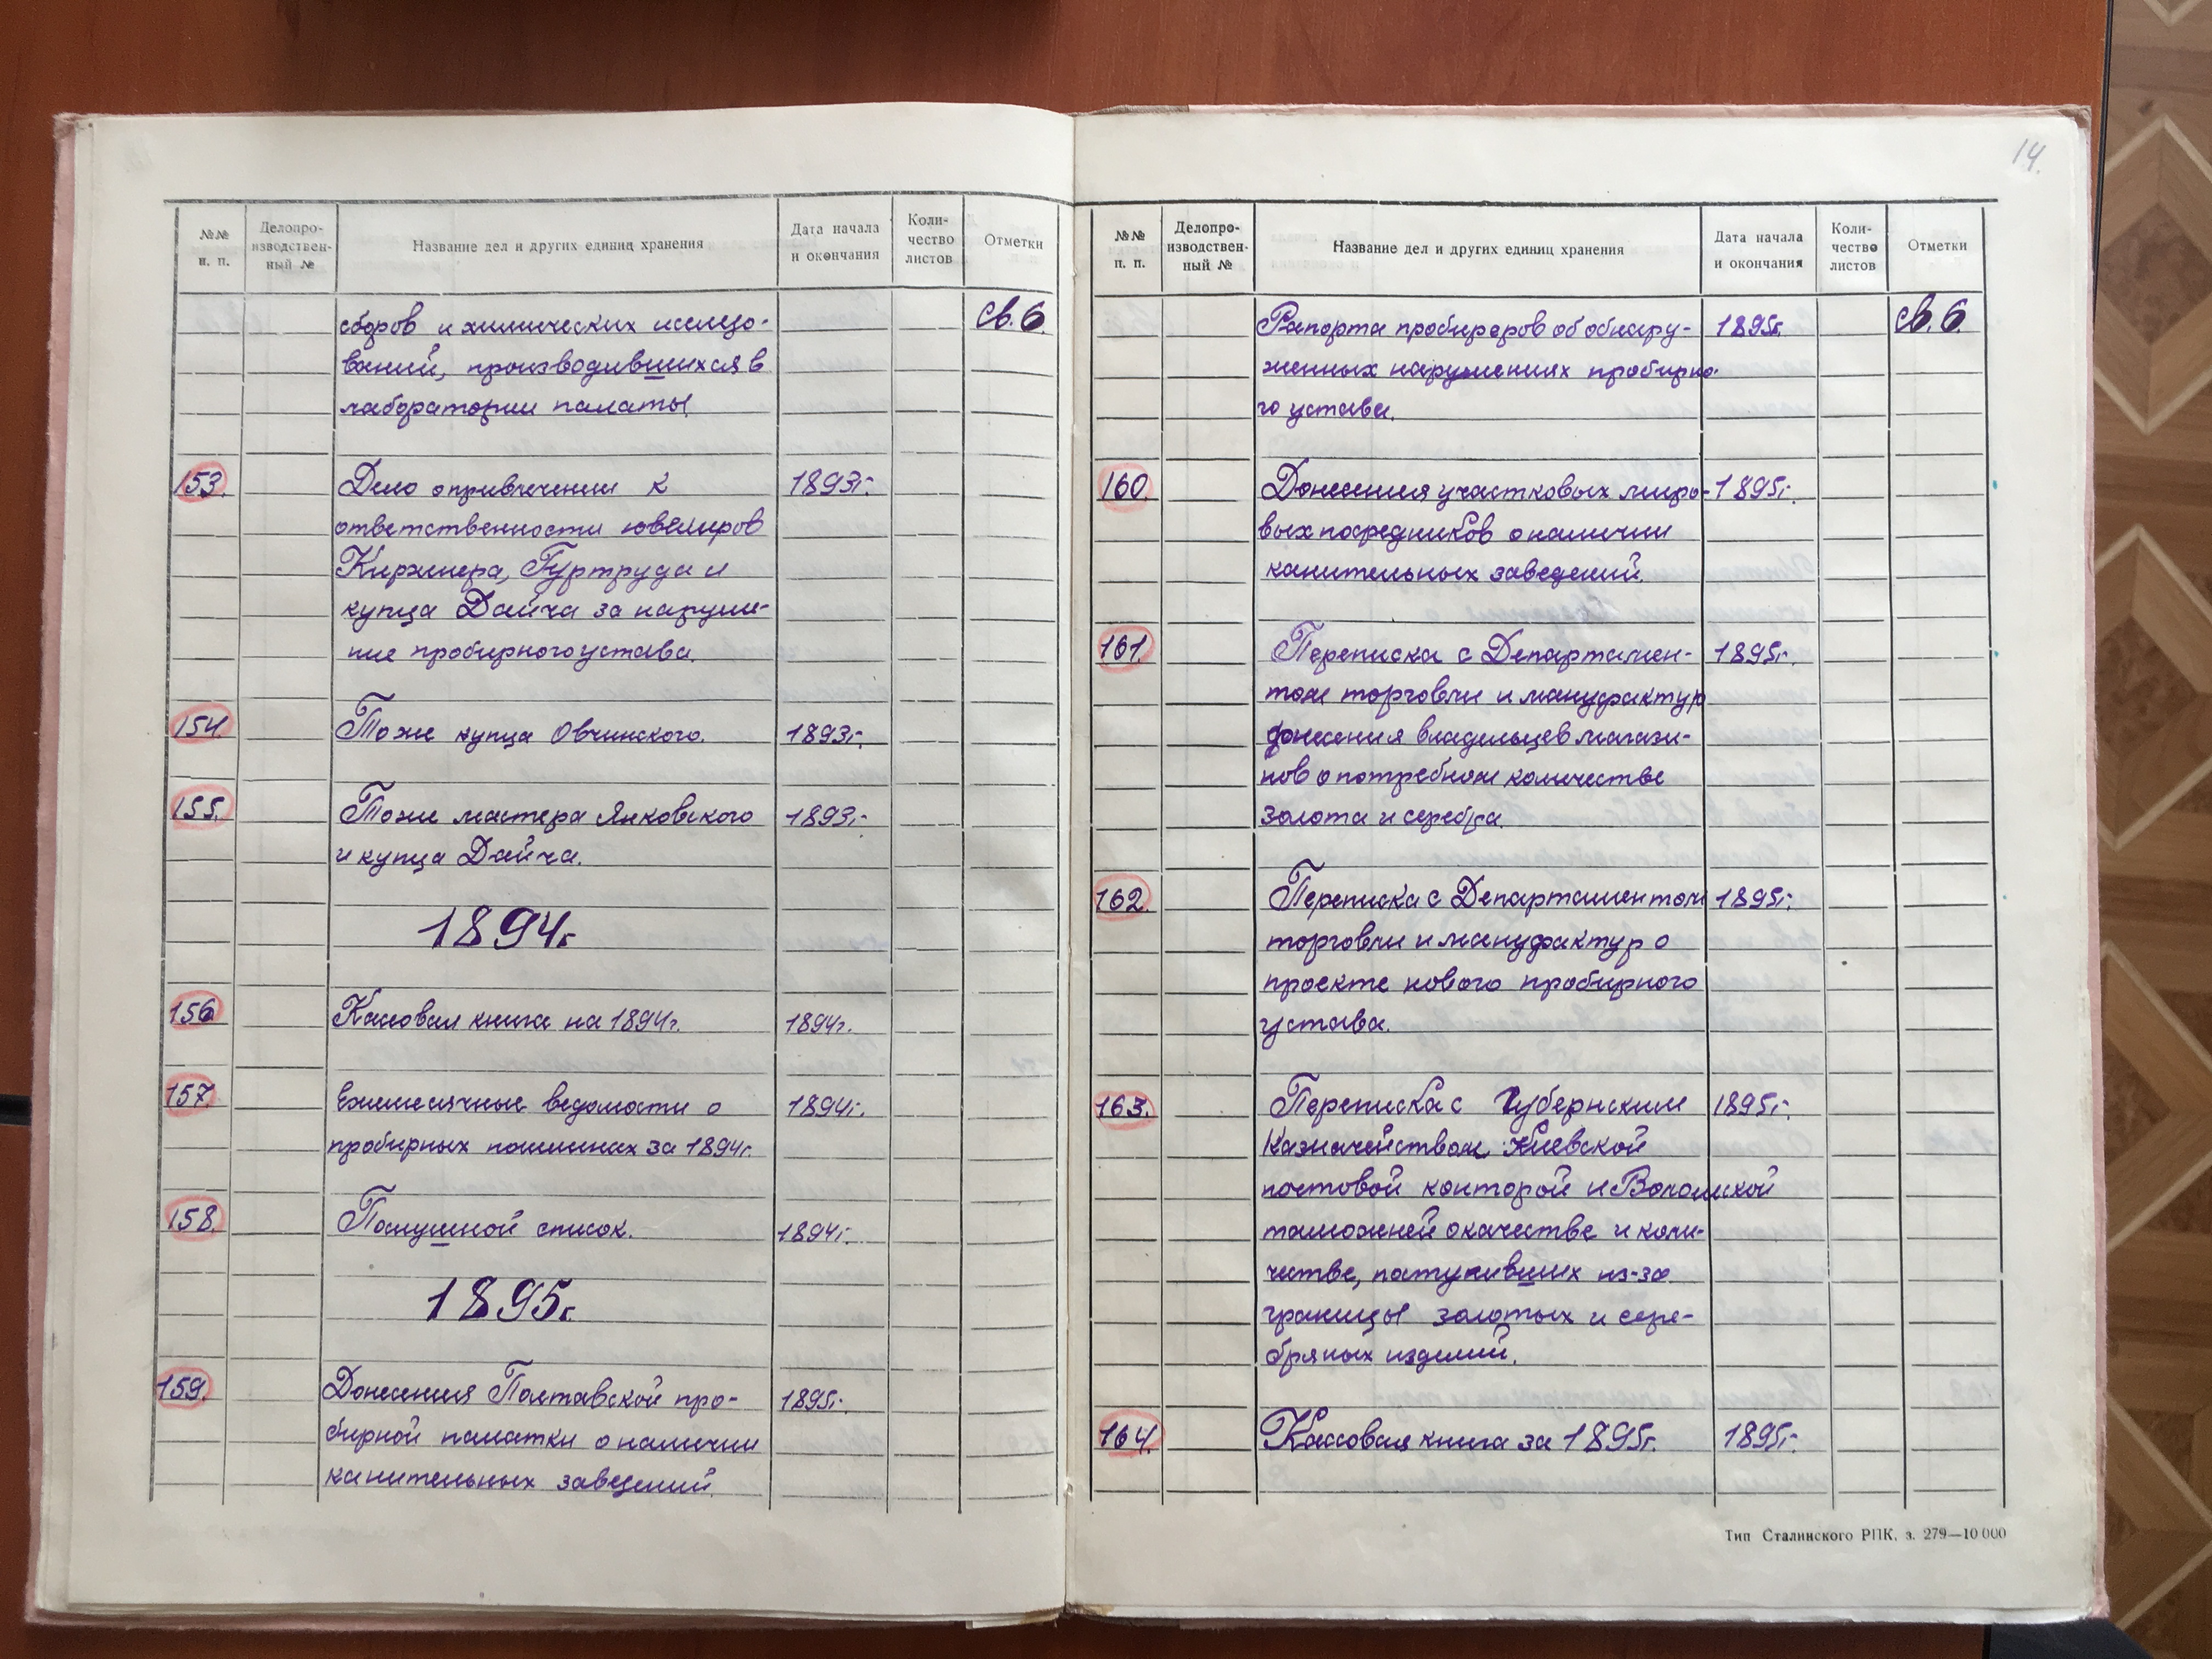 14.
№№ п. п.
Делопроизводствен-ный №
Название дел и других единиц хранения
Дата начала и окончания
Коли-чество листов
Отметки
сборов и химических исследо- св. 6
ваний, производившихся в
лаборатории палаты.
153. Дело о привлечении к 1893г.
ответственности ювелиров
Киржнера, Гуртруда и
купца Дайча за наруше-
ние пробирного устава.
154. То же купца Овчинского. 1893г.
155. То же мастера Янковского 1893г.
и купца Дайча.
1894г.
156 Кассовая книга на 1894г. 1894г.
157. Ежемесячные ведомости о 1894г.
пробирных пошлинах за 1894г.
158. Послужной список. 1894г.
1895г.
159. Донесения Полтавской про- 1895г.
бирной палатки о наличии
канительных заведений.
№№ п. п.
Делопро-изводствен-ный №
Название дел и других единиц хранения
Дата начала и окончания
Коли-чество листов
Отметки
Рапорта пробиреров об обнару- 1895г. св. 6.
женных нарушениях пробирно-
го устава.
160. Донесения участковых миро- 1895г.
вых посредников о наличии
канительных заведений.
161. Переписка с Департамен- 1895г.
том торговли и мануфактур
донесения владельцев магази-
нов о потребном количестве
золота и серебра.
162. Переписка с Департаментом 1895г.
торговли и мануфактур о
проекте нового пробирного
устава.
163. Переписка с Губернским 1895г.
казначейством Киевской
почтовой конторой и Волочиской
таможней о качестве и коли-
честве, поступивших из-за
границы золотых и сере-
бряных изделий.
164. Кассовая книга за 1895г. 1895г.
Тип Сталинского РПК, з. 279—10 000